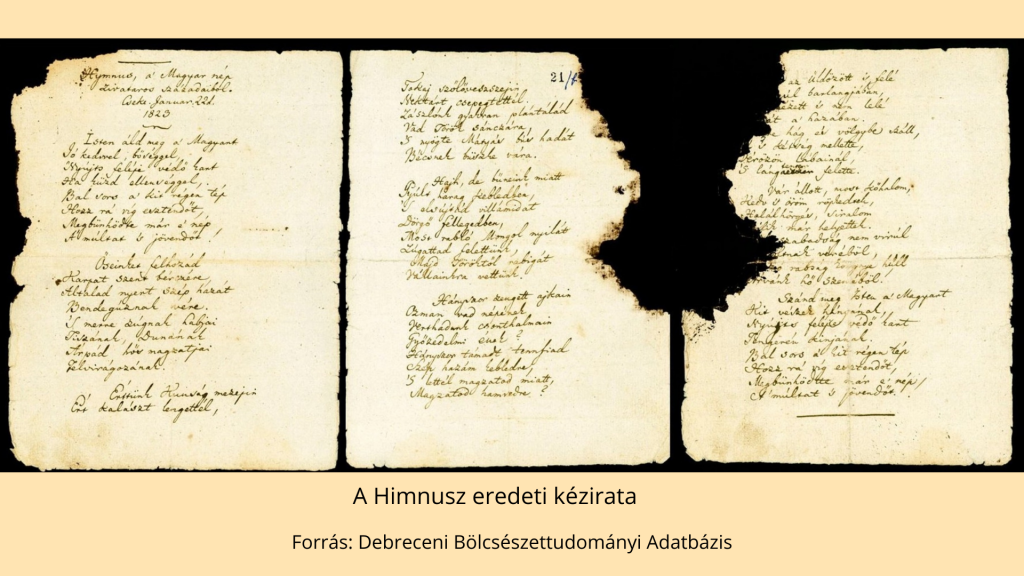 Hymnus, a' Magyar nép
zivataros századaiból.
Cseke. Januar. 22d.
1823
Isten áldd meg a' Magyart
Jó kedvvel, bőséggel,
Nyújts feléje védő kart
Ha küzd ellenséggel,
Bal sors a' kit régen tép
Hozz rá víg esztendőt,
Megbűnhödte már e' nép
A' múltat 's jövendőt!
Őseinket felhozád
Kárpát szent bérczére,
Általad nyert szép hazát
Bendegúznak vére.
'S merre zúgnak habjai
Tiszának, Dunának
Árpád hős magzatjai
Felvirágozának.
Értünk Kunság mezejin
Ért kalászt lengettél,
21/
Tokaj szőlővesszejin
Nektárt csepegtettél.
Zászlónk gyakran plántálád
Vad Török sánczára,
'S nyögte Mátyás bús hadát
Bécsnek büszke vára.
Hajh, de bűneink miatt
Gyúlt harag kebledben,
'S elsújtád villámidat
Dörgő fellegedben,
Most rabló Mongol nyilát
Zúgattad felettünk,
Majd Töröktől rabigát
Vállainkra vettünk.
Hányszor zengett ajkain
Ozman vad népének
Vert hadunk csonthalmain
Győzedelmi ének?
Hányszor támadt tennfiad
Szép hazám kebledre,
'S lettél magzatod miatt,
Magzatod hamvvedre?
az üldözött 's felé
barlangjában,
's nem lelé
a' hazában.
hág és völgybe száll,
's kétség mellette,
Vérözön lábainál,
'S lángtenger felette.
Vár állott, most kőhalom,
Kedv 's öröm röpkedtek,
Halálhörgés, siralom
már helyettek.
szabadság nem virúl
véréből,
hull
hő szeméből.
Szánd meg Isten a' Magyart
Kit vészek hányának,
Nyújts feléje védő kart
Tengerén kínjának.
Bal sors a' kit régen tép
Hozz rá víg esztendőt,
Megbűnhödte már e' nép
A' múltat 's jövendőt!
A Himnusz eredeti kézirata
Forrás: Debreceni Bölcsészettudományi Adatbázis